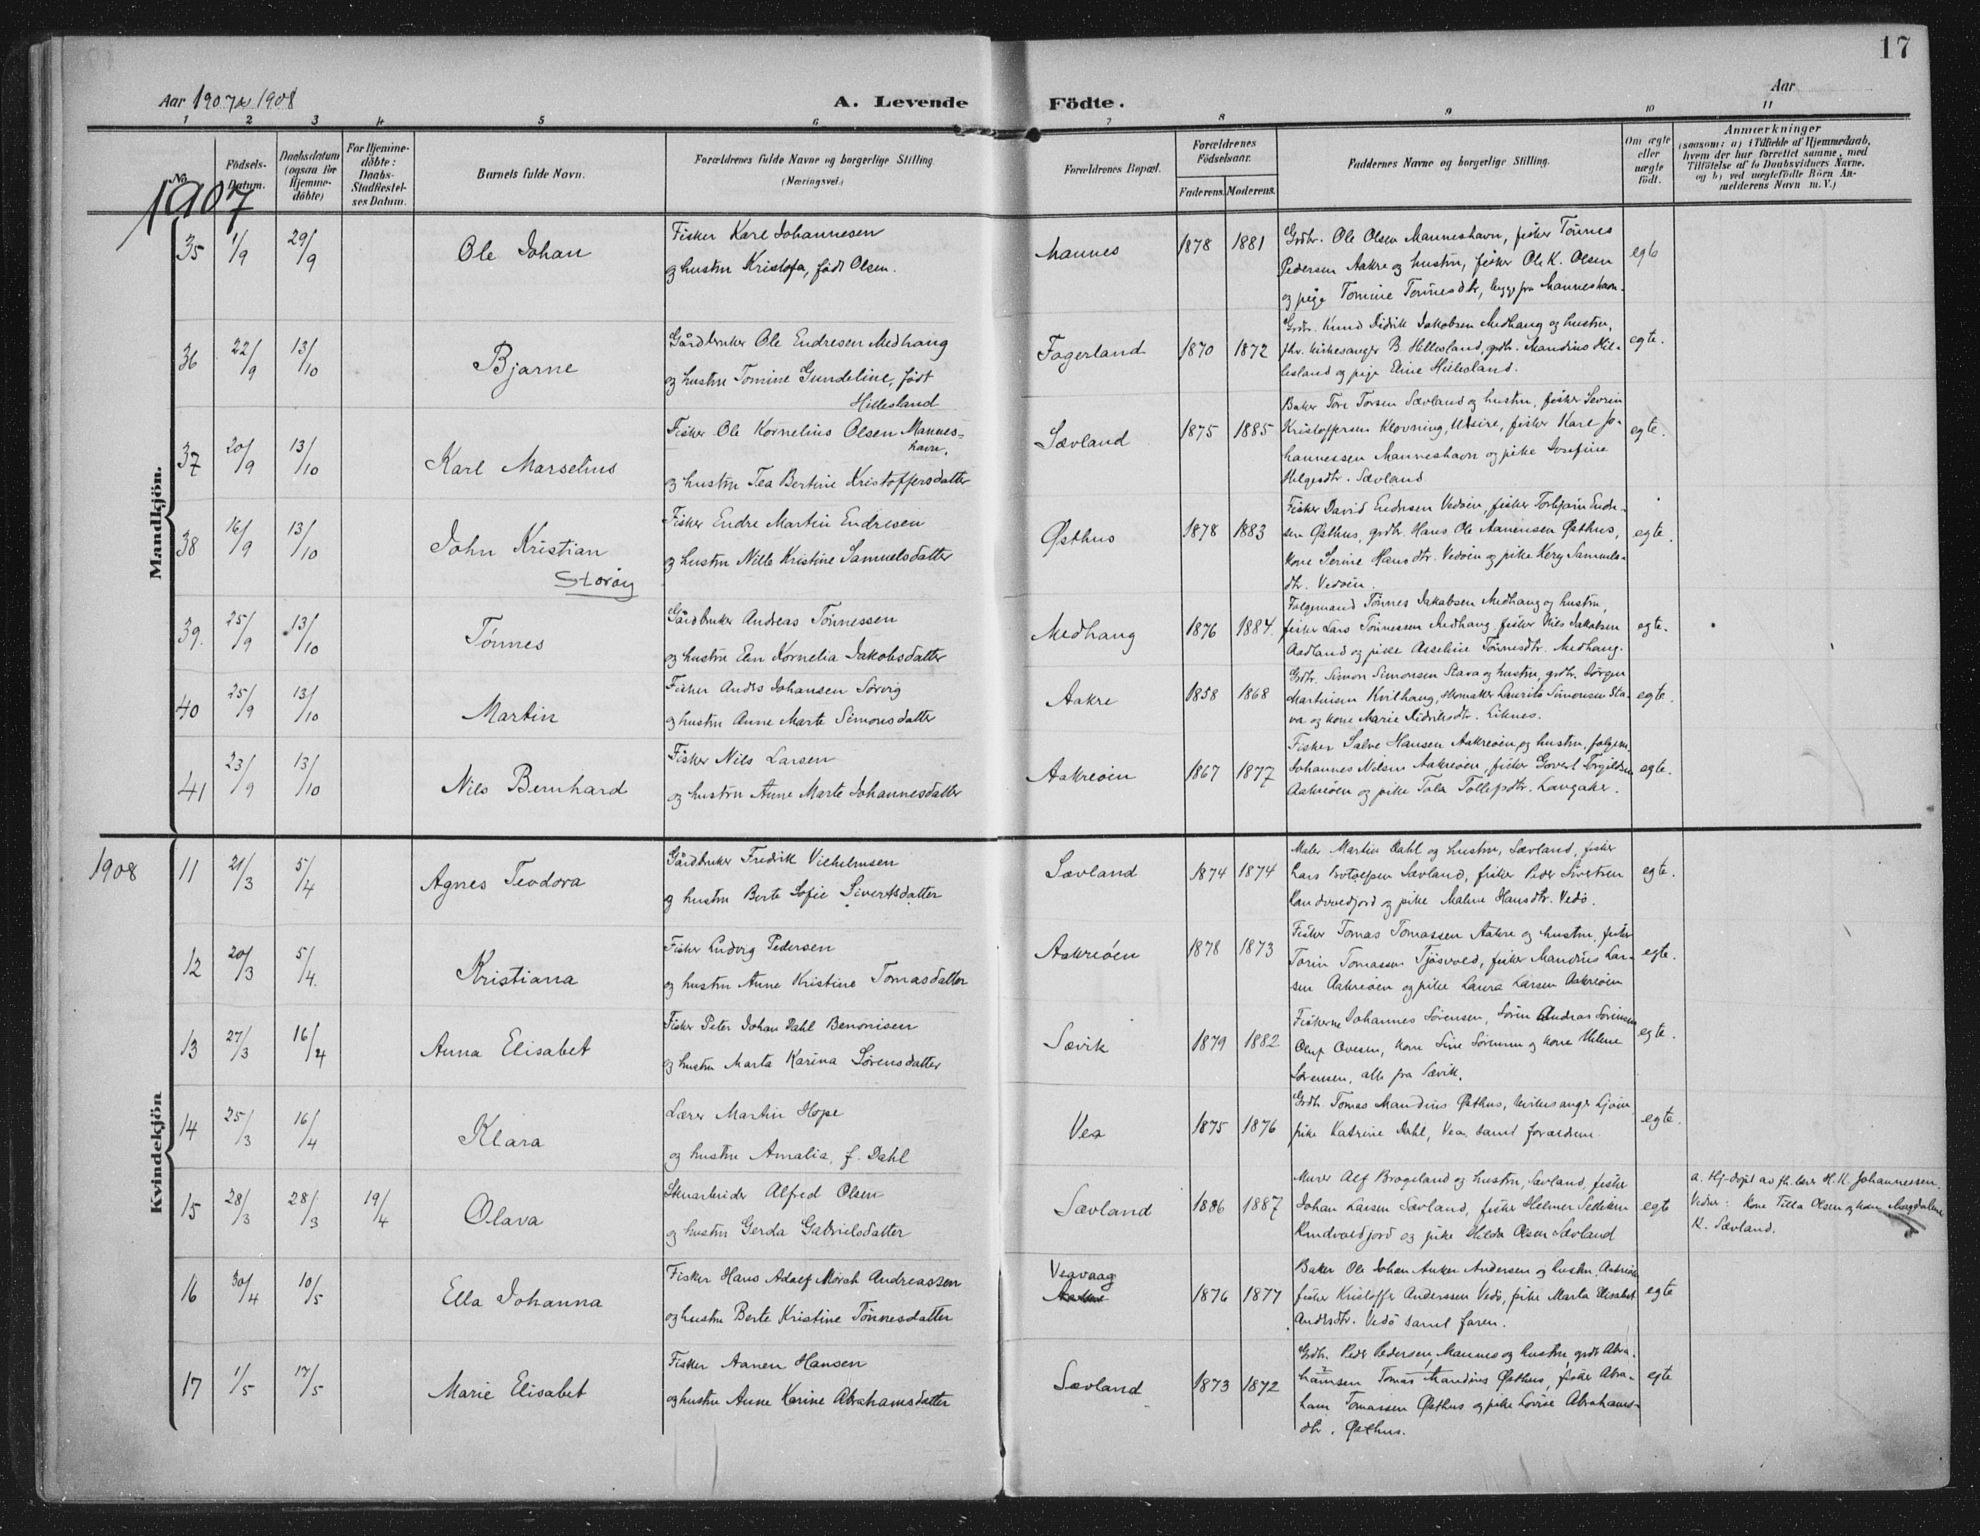 17
Aar 1907 & 1908
A. Levende Födte.
Aar
1 2 3 4 5 6 7 8 9 10 11
No.
Födsels-Datum.
Daabsdatum (ogsaa for Hjemme-döbte)
For Hjemme-döbte: Daabs-Stadfæstel-ses Datum.
Barnets fulde Navn.
Forældrenes fulde Navne og borgerlige Stilling
(Næringsvei.)
Forældrenes Bopæl.
Forældrenes Födselsaar.
Faderens. Moderens.
Faddernes Navne og borgerlige Stilling.
Om ægte eller uægte födt.
Anmærkninger
(saasom: a) i Tilfælde af Hjemmedaab, hvem der har forrettet samme, med Tilföielse af to Daabsvidners Navne, og b) ved uægtefödte Börn An-melderens Navn m. V.)
1907
Mandkjön.
35 1/9 29/9 Ole Johan
Fisker Karl Johannesen
og hustru Kristofa, født Olsen.
Mannes 1878 1881
Grdbr. Ole Olsen Manneshavn, fisker Tönnes
Pedersen Aakre og hustru, fisker Ole K. Olsen
og pige Tomine Tønnesdtr, begge fra Manneshavn.
egte
36 22/9 13/10 Bjarne
Gårdbruker Ole Endresen Medhaug
og hustru Tomine Gundeline, født
Hillesland
Fagerland 1870 1872
Grdbr. Knud Didrik Jakobsen Medhaug og hustru,
fhv. kirkesanger B. Hillesland, grdbr. Mandius Hil-
lesland og pige Eline Hillesland.
egte.
37 20/9 13/10 Karl Marselius
Fisker Ole Kornelius Olsen Mannes-
havn.
og hustru Tea Bertine Kristoffersdatter
Sævland 1875 1885
Baker Tore Torsen Sævland og hustru, fisker Sevrin
Kristoffersen Klovning, Utsire, fisker Karl Jo-
hannessen Manneshavn og pike Josefine
Helgesdtr. Sævland.
egte.
38 16/9 13/10 John Kristian
Storøy
Fisker Endre Martin Endresen
og hustru Nille Kristine Samuelsdatter
Østhus 1878 1883
Fisker David Endresen Vedøen, fisker Torbjørn Endre-
sen Østhus, grdbr. Hans Ole Aanensen Østhus,
kone Serine Hansdtr. Vedøen og pike Kery Samuels-
dtr. Vedøen.
egte.
39. 25/9 13/10 Tönnes
Gårdbruker Andreas Tönnessen
og hustru Elen Kornelia Jakobsdatter
Medhaug 1876 1884.
Folgemand Tönnes Jakobsen Medhaug og hustru,
fisker Lars Tönnessen Medhaug, fisker Nils Jakobsen
Aadland og pike Asseline Tönnesdtr. Medhaug.
egte.
40 25/9 13/10 Martin
Fisker Andrs Johansen Sørvig
og hustru Anne Marte Simonsdatter
Aakre 1858 1868
Grdbr. Simon Simonsen Stava og hustru, grdbr. Jørgen
Martinsen Kvilhaug, skomaker Laurits Simonsen Sta-
va og kone Marie Didriksdtr. Liknes.
egte.
41 23/9 13/10 Nils Bernhard
Fisker Nils Larsen
og hustru Anne Marte Johannesdatter
Aakreøen 1867 1877
Fisker Salve Hansen Aakreøen og hustru, folgem.
Johannes Nilsen Aakreøen, fisker Govert Torgildsen
Aakreøen og pike Tala Tollefsdtr. Langaker.
egte.
1908
Kvindekjön
11 21/3 5/4 Agnes Teodora
Gårdbruker Fredrik Vilhelmsen
og hustru Berte Sofie Sivertsdatter
Sævland 1874 1874
Maler Martin Dahl og hustru, Sævland, fisker
Lars Sævland, fisker Peder Sivertsen
Sandvedfjord og pike Maline Hansdtr. Vedø.
egte.
12 20/3 5/4. Kristiana
Fisker Ludvig Pedersen
og hustru Anne Kristine Tomasdatter
Aakreöen 1878 1873
Fisker Tomas Tomassen Aakre og hustru, fisker
Torin Tomassen Tjösvold, fisker Mandius Lar-
sen Aakreöen og pike Laura Larsen Aakreöen
egte.
13 27/3 16/4 Anna Elisabet
Fisker Peter Johan Dahl Benonisen
og hustru Marta Karina Sörensdatter
Sævik 1879 1882
Fiskerne Johannes Sörensen, Sören Andreas Sörensen
Oluf Ovesen, kone Sine Sörensen og kone Helene
Sörensen, alle fra Sævik.
egte.
14 25/3 16/4 Klara
Lærer Martin Hope
og hustru Amalia, f. Dahl
Vea 1875 1876
Grdbr. Tomas Mandius Østhus, kirkesanger Ljoen
pike Katrine Dahl, Vea samt forældrene.
egte.
15 28/3 28/3 19/4 Olava
Skoarbeider Alfred Olsen
og hustru Gerda Gabrielsdatter
Sævland 1886 1887
Murer Alf Brageland og hustru, Sævland, fisker
Johan Larsen Sævland, fisker Helmer
Sandvedfjord og pike Hilda Olsen Sævland
egte
a. Hj.-døpt av fh. lærer H. K. Johannessen.
Vidner: kone Tilla Olsen og kone Magdalene
K. Sævland.
16 30/4 10/5 Ella Johanna
Fisker Hans Adolf Mörch Andreassen
og hustru Berte Kristine Tönnesdatter
Veavaag
Aakre
1876 1877
Baker Ole Johan Anker Andersen og hustru, Aakreöen
fisker Kristoffer Anderssen Vedö, pike Marta Elisabet
Andrsdtr. Vedö samt faren.
egte
17 1/5 17/5 Marie Elisabet
Fisker Aanen Hansen
og hustru Anne Karine Abrahamsdatter
Sævland 1873 1872
Grdbr. Peder Pedersen Mannes og hustru, grdbr Abra-
hamsen Tomas Mandius Østhus, fisker Abra-
ham Tomassen Østhus og pike Lovise Abrahams-
dtr. Østhus.
egte